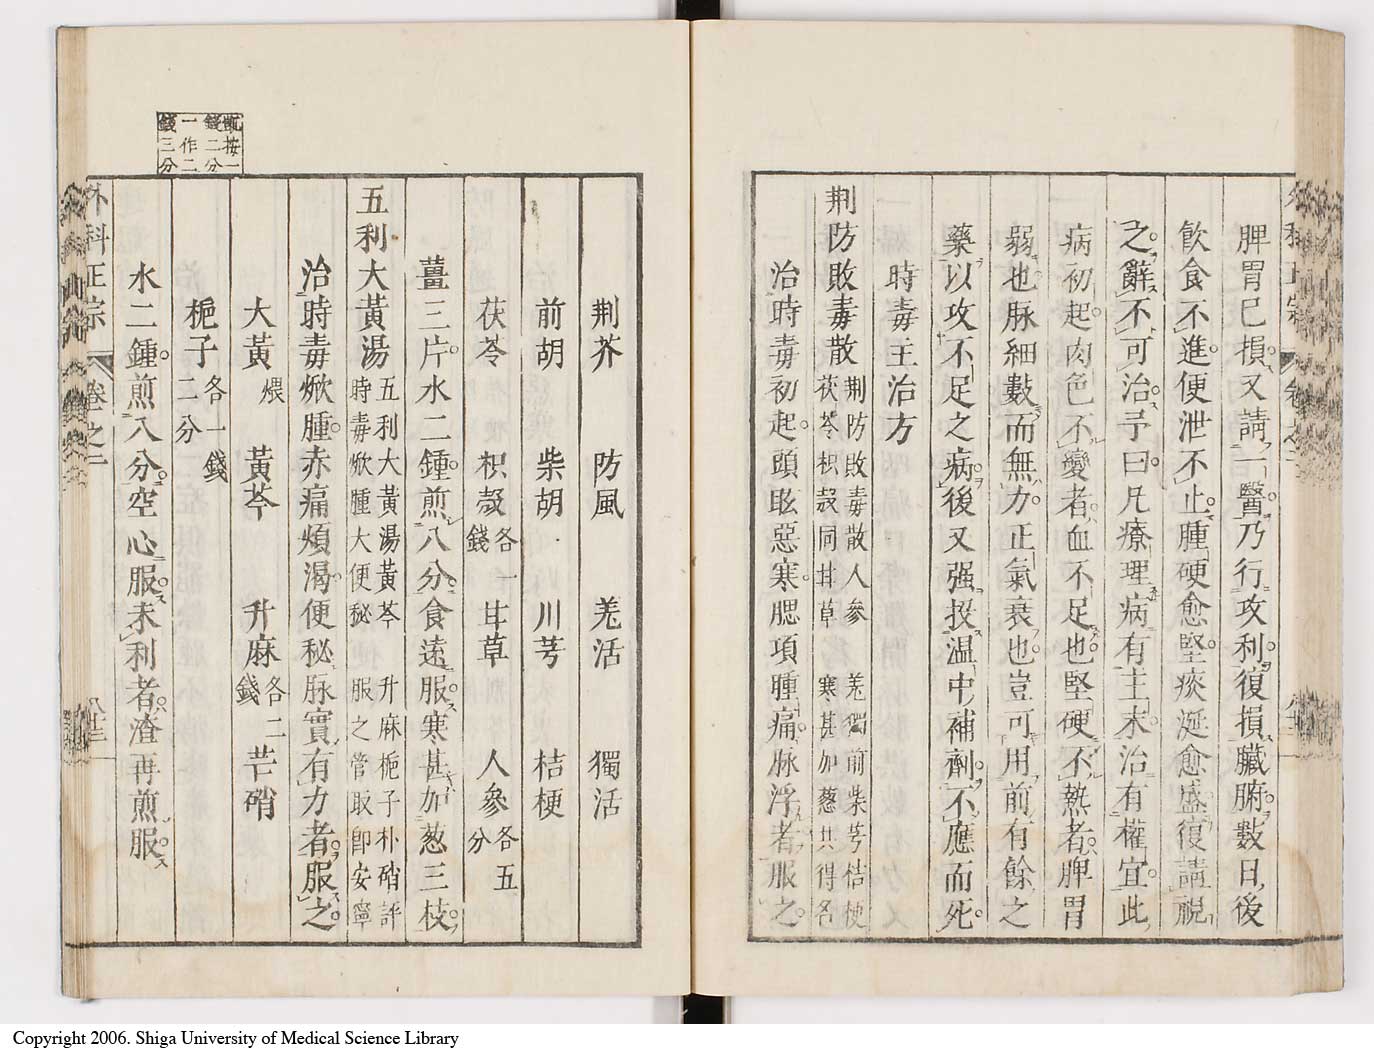 脾胃已損又請一醫乃行攻利復損臟腑數日後
飲食不進便泄不止腫硬愈堅痰涎愈盛復請視
之辭不可治予曰凡療理病有主末治有權宜此
病初起肉色不變者血不足也堅硬不熱者脾胃
弱也脉細數而無力正氣衰也豈可用前有餘之
藥以攻不足之病後又强投温中補劑不應而死
時毒主治方
荆防敗毒散
荆防敗毒散人參羗獨前柴芎桔梗
茯苓枳殼同甘草寒甚加葱共得名
治時毒初起頭眩惡寒腮項腫痛脉浮者服之
荆芥 防風 羗活 獨活
前胡 柴胡 川芎 桔梗
茯苓 枳殼各一錢 甘草 人參各五分
薑三片水二鍾煎八分食遠服寒甚加葱三枝
五利大黃湯
五利大黃湯黃芩升麻梔子朴硝評
時毒焮腫大便秘服之管取卽安寧
治時毒焮腫赤痛煩渴便秘脉實有力者服之
大黃煨 黃芩 升麻各二錢 芒硝
梔子各一錢二分
水二鍾煎八分空心服未利者渣再煎服
按一
錢二分
一作二
錢三分
外科正宗 卷之二
Copyright 2006. Shiga University of Medical Science Library